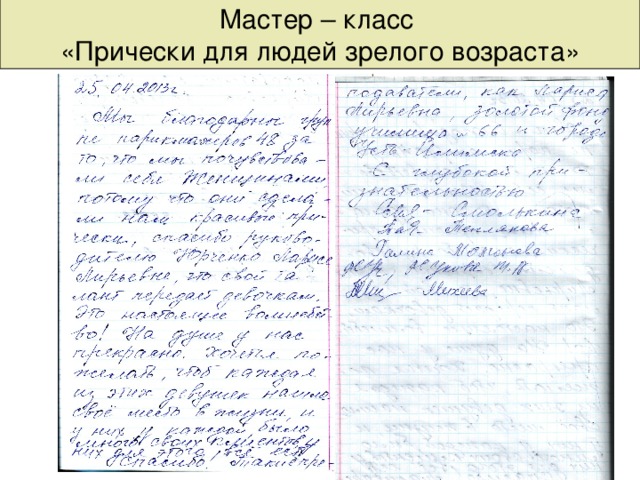 Мастер – класс
«Прически для людей зрелого возраста»
25.04.2013г.
Мы благодарны груп
пе парикмахеров 48 за
то, что мы почувствова-
ли себя Женщинами,
потому что они сдела-
ли нам красивые при-
чески, спасибо руково-
дителю Юрченко Ларисе
Лирьевне, что свой та
лант передаёт девочкам.
Это настоящее волшебст
во! На душе у нас
прекрасно. Хочется по-
желать, чтоб каждая
из этих девушек нашла
своё место в жизни, и
у них у каждой было
много своих клиентов, у
них для этого всё есть
Спасибо! Такие пре-
подаватели, как Лариса
Лирьевна, золотой фонд
училища - 66 и города
Усть-Илимска.
С глубокой при-
знательностью
Смолькина
Теплякова
Галина
Михеева